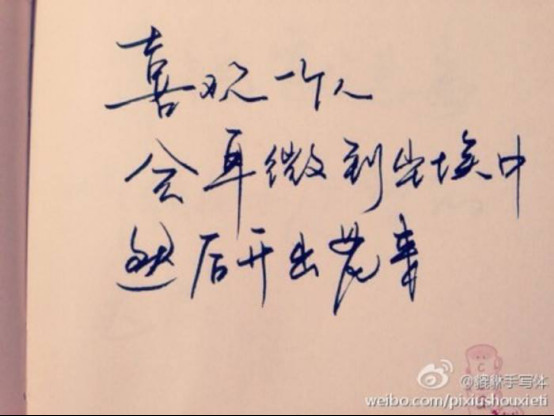 喜欢一个人
会卑微到尘埃中
然后开出花来
@貔貅手写体
weibo.com/pixiushouxieti